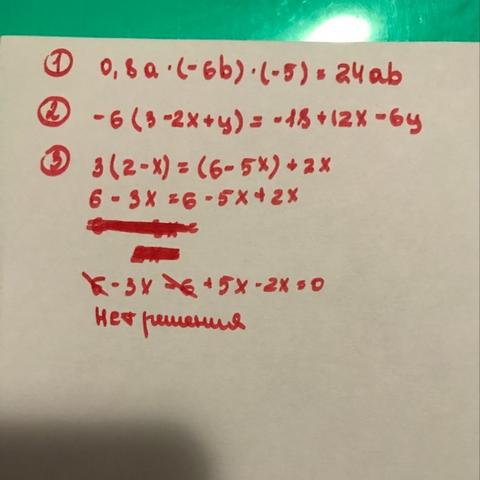 ① 0,8a·(-6b)·(-5) = 24ab
② -6(3-2x+y) = -18+12x-6y
③ 3(2-x) = (6-5x)+2x
6-3x = 6-5x+2x
6-3x-6+5x-2x=0
Нет решения